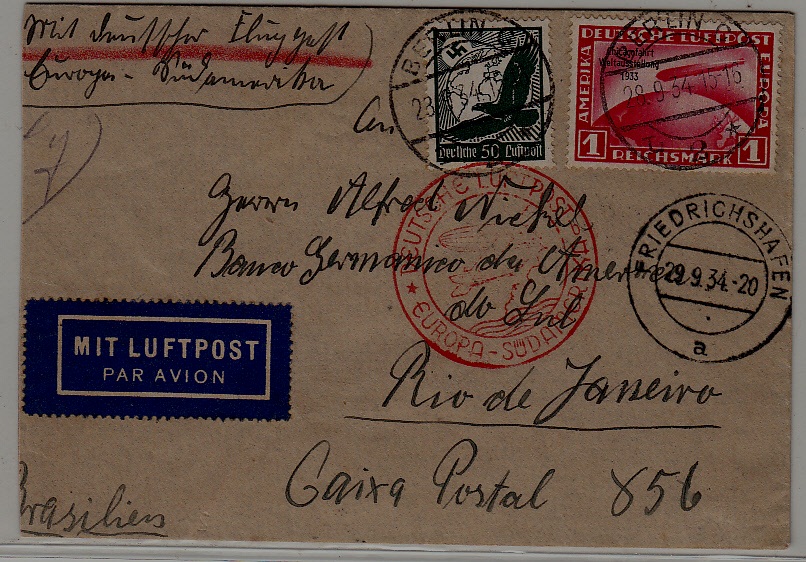 Mit deutscher Flugpost
Europa - Südamerika
An
Herrn Alfred Nickel
Banco Germanico da America
do Sul
Rio de Janeiro
Caixa Postal 856
Brasilien
MIT LUFTPOST
PAR AVION
BERLIN
Deutsche 50 Luftpost
DEUTSCHE LUFTPOST
AMERIKA
EUROPA
Chicagofahrt
Weltausstellung
1933
28.9.34.15-16
1 REICHSMARK 1
DEUTSCHE LUFTPOST
EUROPA - SÜDAMERIKA
FRIEDRICHSHAFEN
29.9.34.-20
a